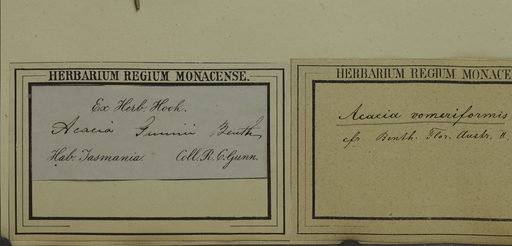 HERBARIUM REGIUM MONACENSE.
Ex Herb. Hook.
Acacia Gunnii Benth.
Hab. Tasmania. Coll. R. C. Gunn.
HERBARIUM REGIUM MONACE
Acacia vomeriformis
cfr. Benth. Flor. Austr. II.